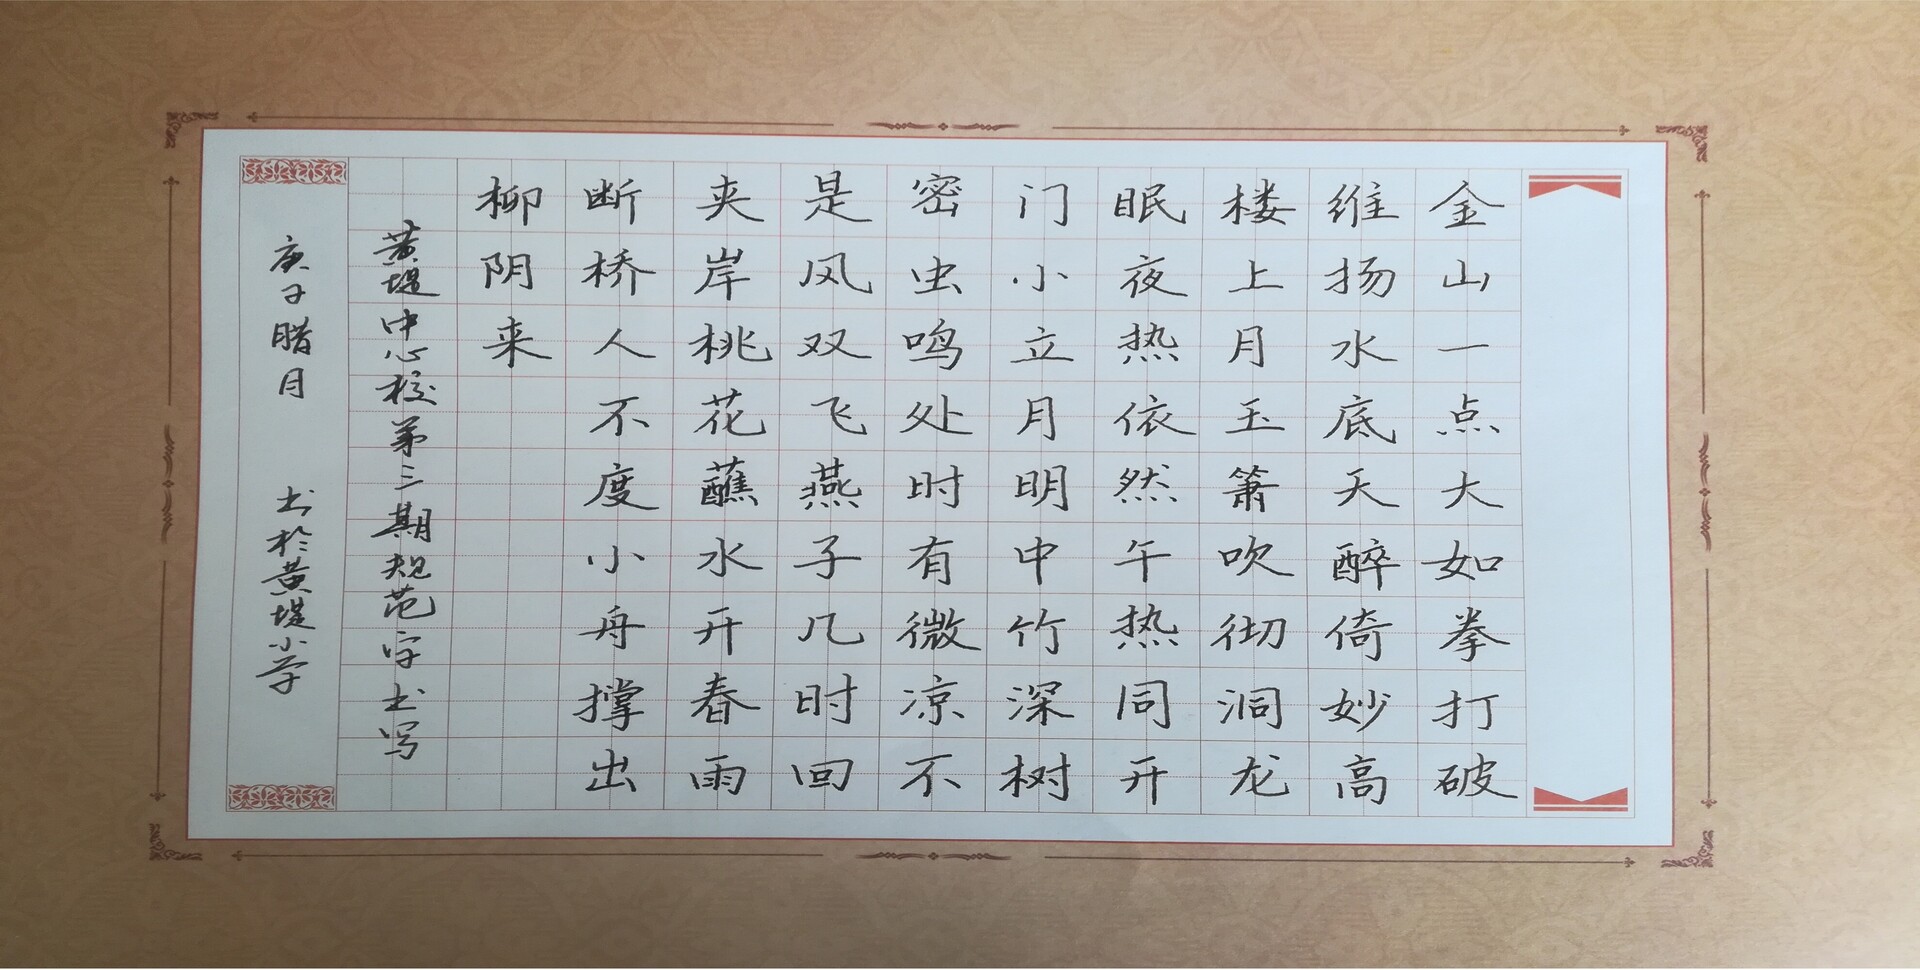 金山一点大如拳打破
维扬水底天醉倚妙高
楼上月玉箫吹彻洞龙
眠夜热依然午热同开
门小立月明中竹深树
密虫鸣处时有微凉不
是风双飞燕子几时回
夹岸桃花蘸水开春雨
断桥人不度小舟撑出
柳阴来
黄堤中心校第三期规范字书写
庚子腊月 书於黄堤小学